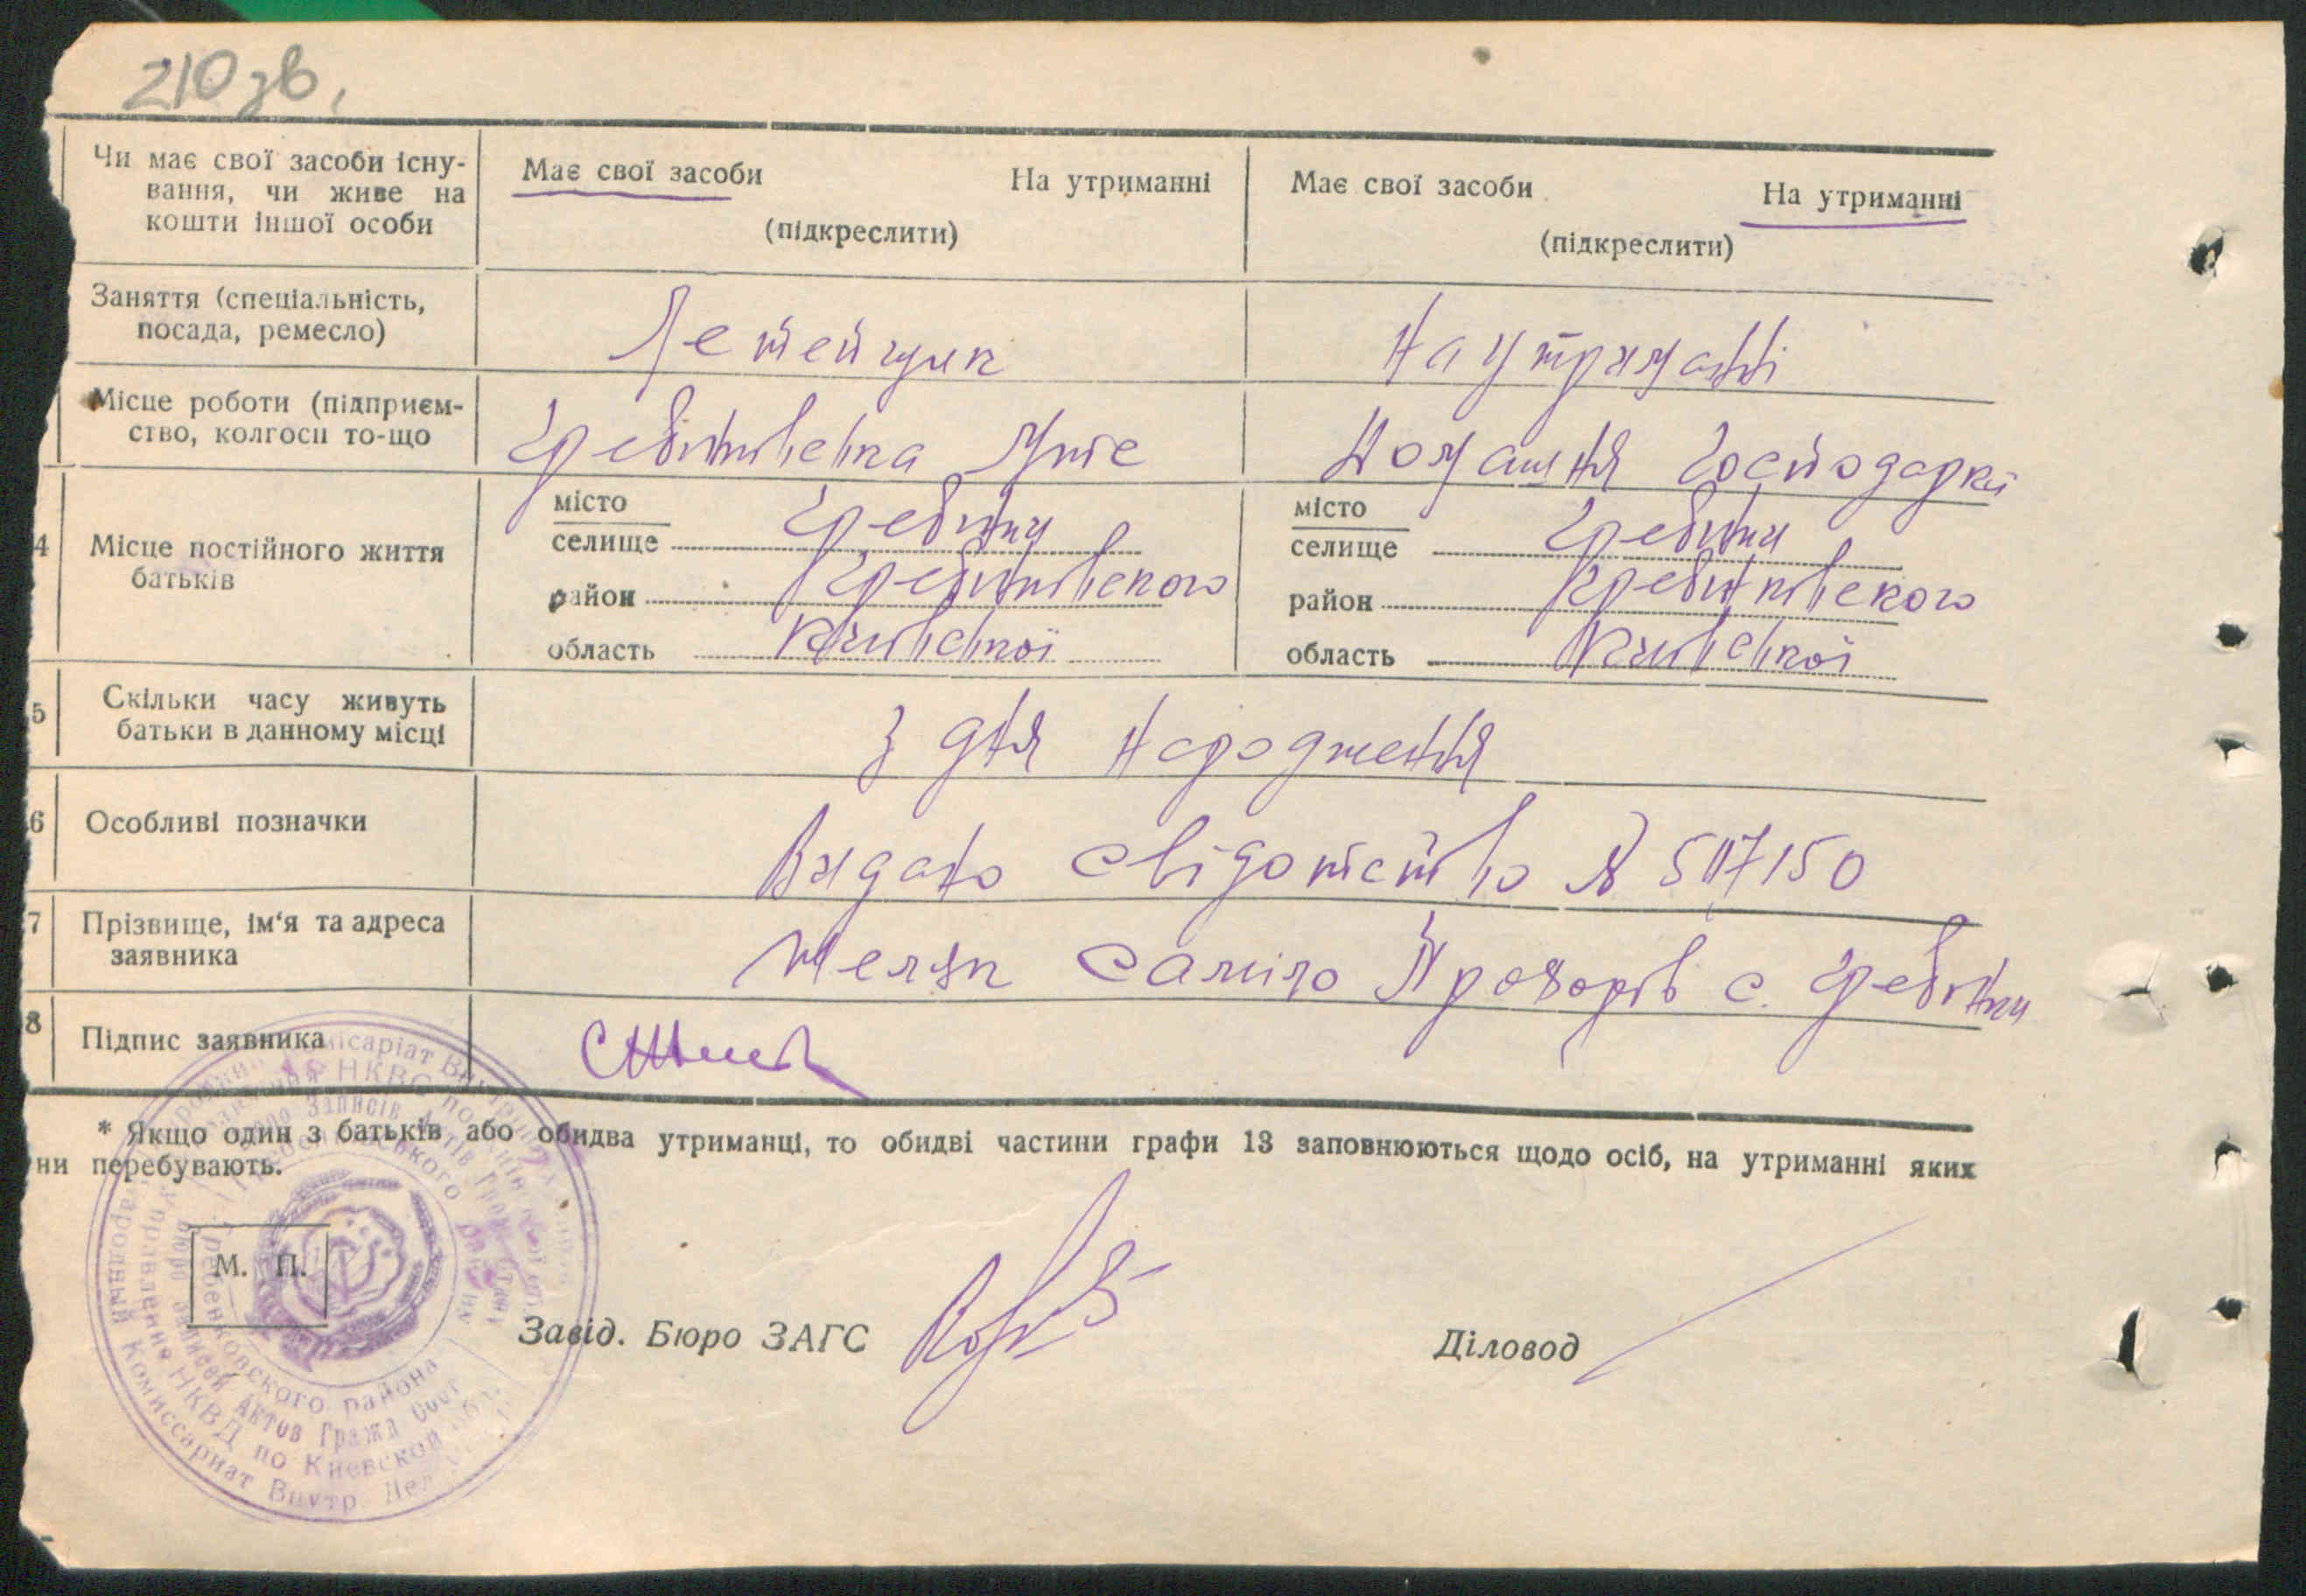 210 зв.
Чи має свої засоби існу-
вання, чи живе на
кошти іншої особи
Має свої засоби На утриманні
(підкреслити)
Має свої засоби На утриманні
(підкреслити)
Заняття (спеціальність,
посада, ремесло)
На утриманні
Місце роботи (підприєм-
ство, колгосп то-що
Гребінківська
Домашня господарка
4
Місце постійного життя
батьків
місто
селище Гребінки
район Гребінківського
область Київської
місто
селище Гребінки
район Гребінківського
область Київської
5
Скільки часу живуть
батьки в данному місці
З дня народження
6
Особливі позначки
Видано свідотство №
7
Прізвище, ім'я та адреса
заявника
с. Гребінки
8
Підпис заявника
* Якщо один з батьків або обидва утриманці, то обидві частини графи 13 заповнюються щодо осіб, на утриманні яких
ни перебувають.
М. П.
Завід. Бюро ЗАГС
Діловод
Гребенковского района
Бюро Записей Актов Гражд Сост
Управление НКВД по Киевской обл.
Народный Комиссариат Внутр. Дел